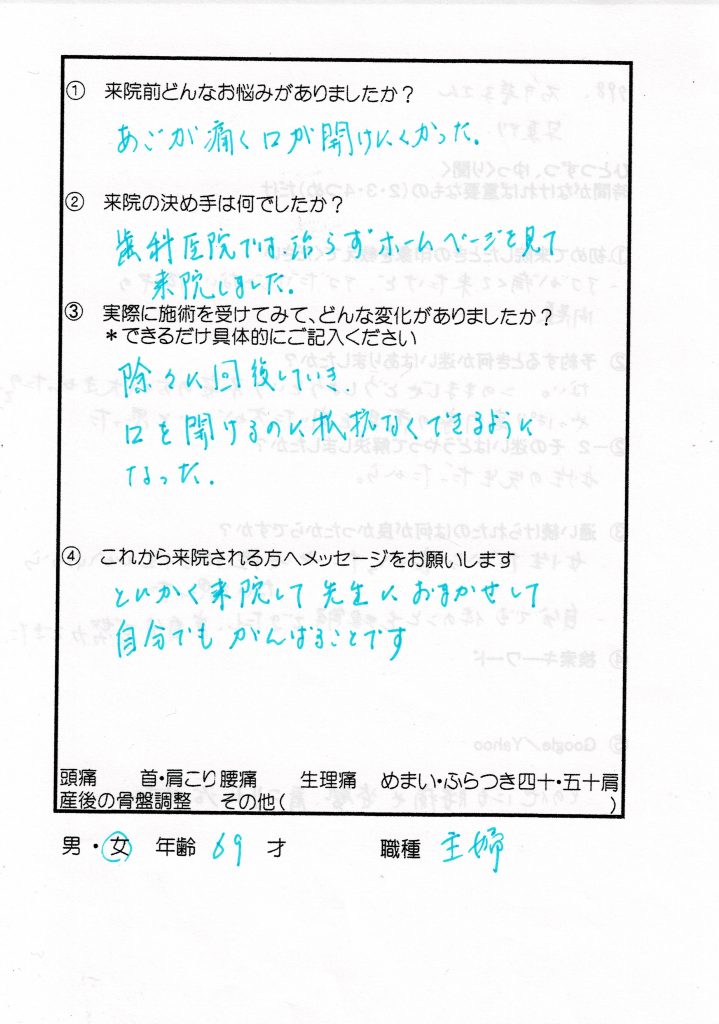 ① 来院前どんなお悩みがありましたか？
あごが痛く口が開けにくかった.
② 来院の決め手は何でしたか？
歯科医院では治らずホームページを見て
来院しました.
③ 実際に施術を受けてみて、どんな変化がありましたか？
＊できるだけ具体的にご記入ください
除々に回復していき.
口を開けるのに抵抗なくできるように
なった.
④ これから来院される方へメッセージをお願いします
とにかく来院して先生におまかせして
自分でもがんばることです
頭痛 首・肩こり 腰痛 生理痛 めまい・ふらつき 四十・五十肩
産後の骨盤調整 その他( )
男・女 年齢 69 才 職種 主婦